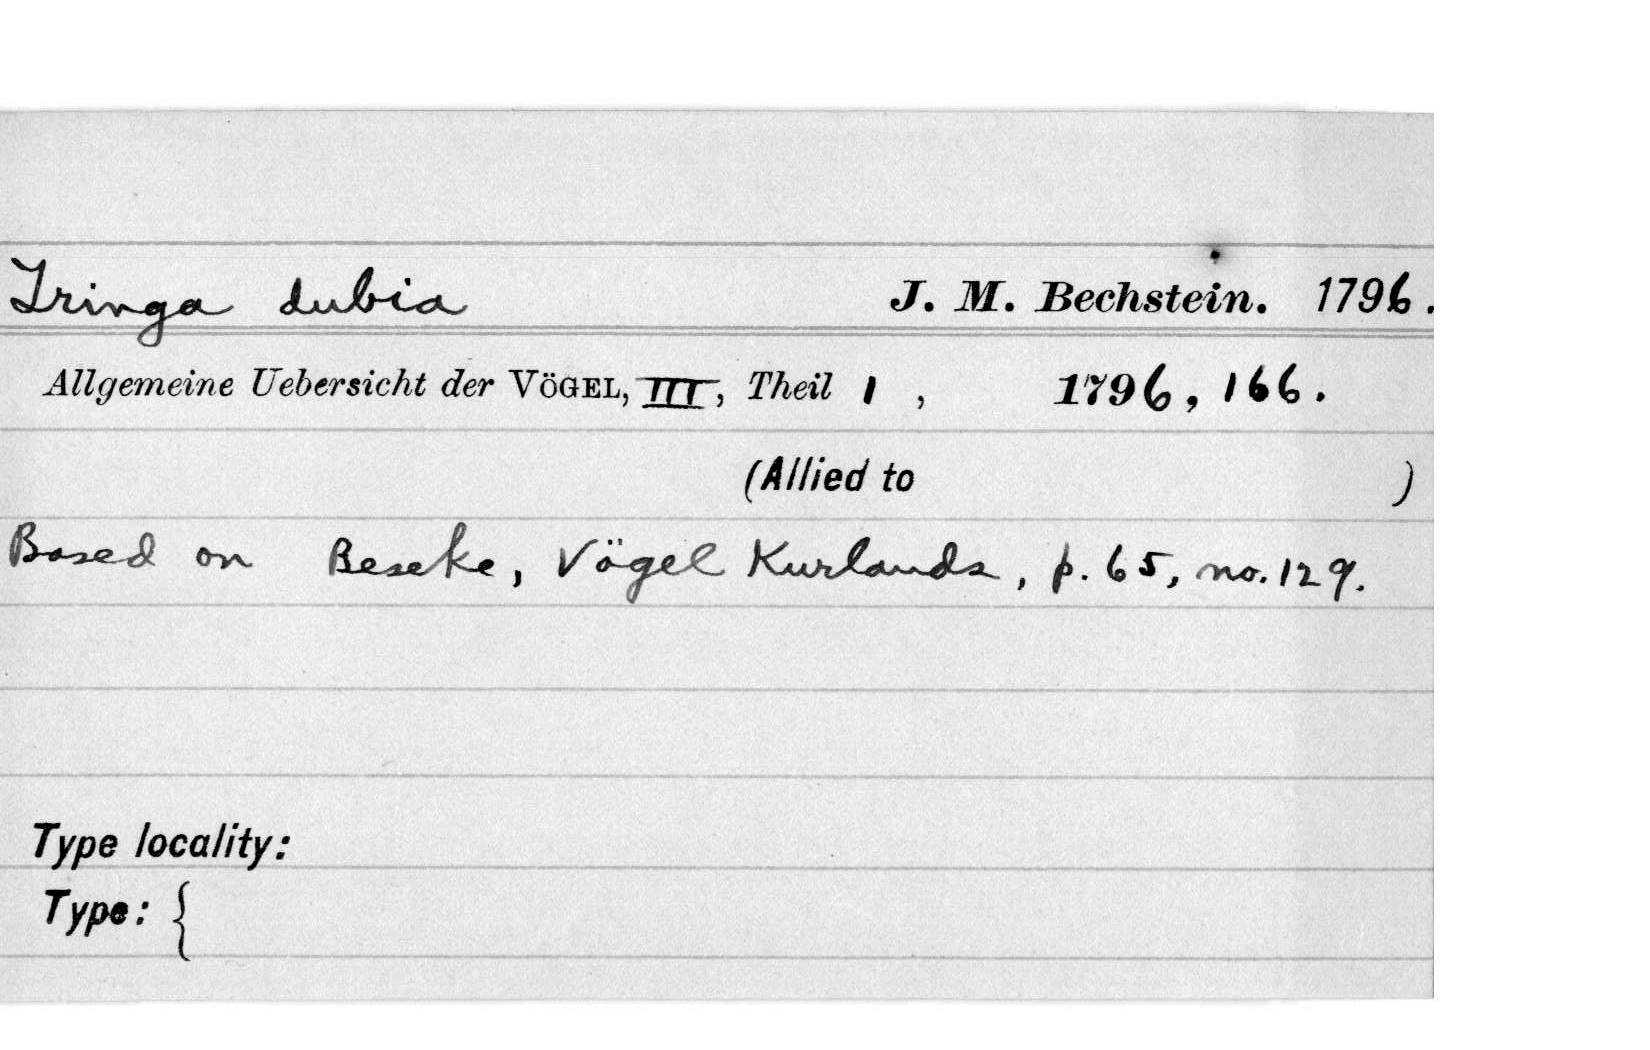 Tringa dubia J. M. Bechstein. 1796.
Allgemeine Uebersicht der VÖGEL, III, Theil 1, 1796, 166.
(Allied to )
Based on Beseke, Vögel Kurlands, p. 65, no. 129.
Type locality:
Type: {